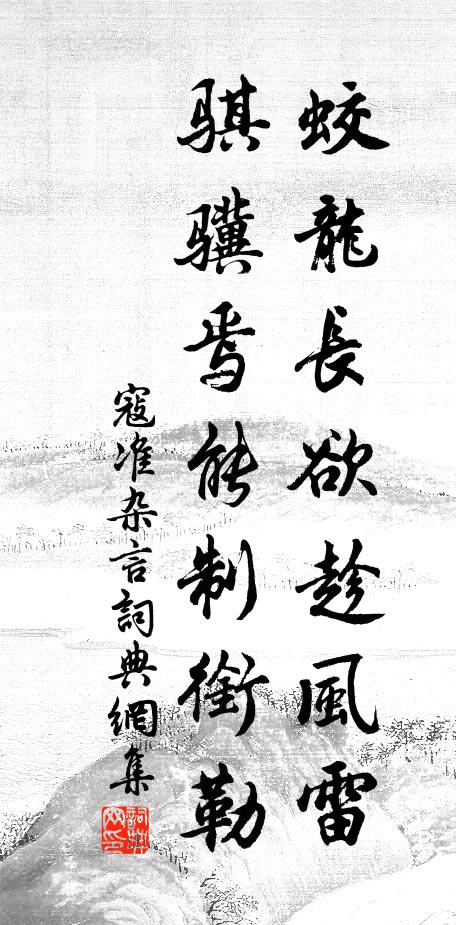 蛟龍長欲趁風雷
騏驥焉能制銜勒
寇准杂言詞典網集